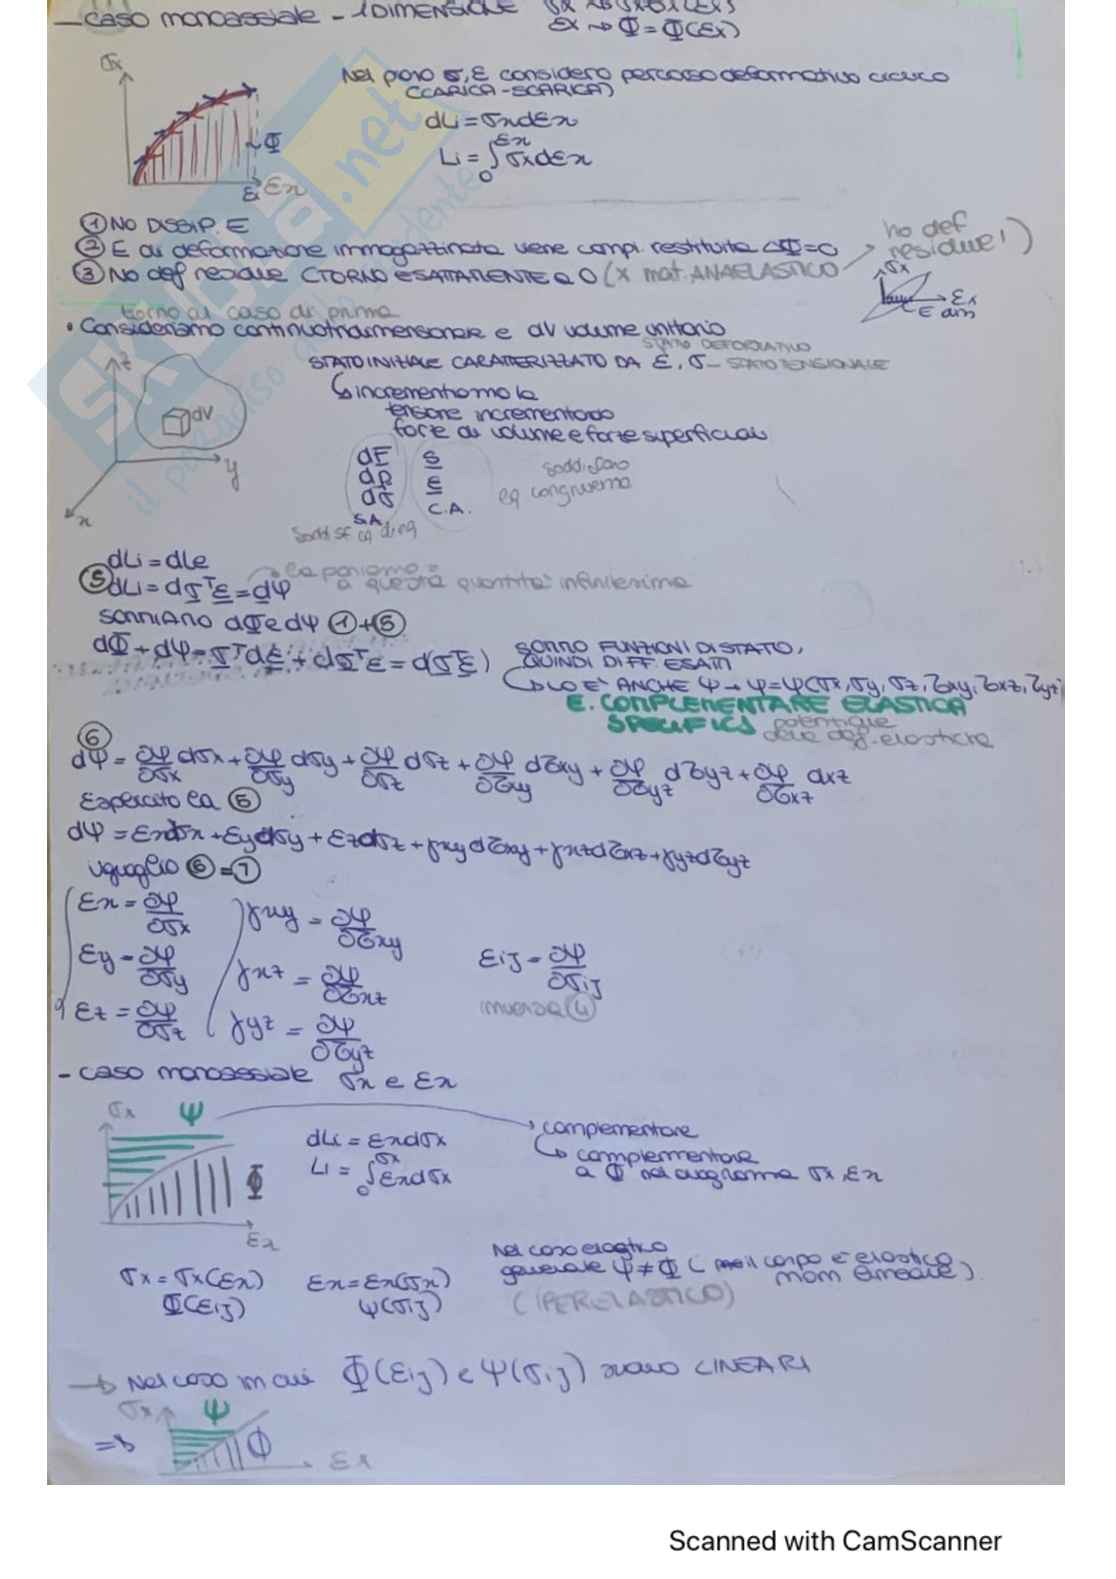 - CASO monoassiale - 1 DIMENSIONE
Ex → Φ = Φ(Ex)
σx
Nel piano σ, ε considero percorso deformativo ciclico
(CARICA-SCARICA)
dLi = σxdεx
Li = ∫0^εx σxdεx
Φ
εx
① NO DISSIP. E
② E di deformazione immagazzinata viene compl. restituita ΔΦ=0
no def residue!)
③ NO def residue (TORNO ESATTAMENTE a 0 (x mat. ANAELASTICO
σx
εx
E diss
torno al caso di prima
• Consideriamo continuo tridimensionale e dV volume unitario
STATO DEFORMATIVO
STATO INIZIALE CARATTERIZZATO DA ε, σ - STATO TENSIONALE
z
dV
y
x
↳ incrementiamo la
tensione incrementando
forze di volume e forze superficiali
dF s
dp ε
dσ C.A.
S.A.
soddisfano
eq congruenza
Soddisf eq di eq
dLi = dLe
⑤ dLi = dσᵀε = dψ
la poniamo =
a questa quantità infinitesima
SOMMIAMO dΦ e dψ ①+⑤
dΦ + dψ = σᵀdε + dσᵀε = d(σᵀε)
SONO FUNZIONI DI STATO,
QUINDI DIFF. ESATTI
↳ LO E' ANCHE ψ → ψ=ψ(σx, σy, σz, τxy, τxz, τyz)
E. COMPLEMENTARE ELASTICA
SPECIFICA
potenziale
delle def. elastiche
⑥
dψ = ∂ψ/∂σx dσx + ∂ψ/∂σy dσy + ∂ψ/∂σz dσz + ∂ψ/∂τxy dτxy + ∂ψ/∂τyz dτyz + ∂ψ/∂τxz dxz
Esplicito la ⑤
dψ = εxdσx + εydσy + εzdσz + γxydτxy + γxzdτxz + γyzdτyz
uguaglio ⑥=⑦
εx = ∂ψ/∂σx γxy = ∂ψ/∂τxy
εy = ∂ψ/∂σy γxz = ∂ψ/∂τxz εij = ∂ψ/∂σij
εz = ∂ψ/∂σz γyz = ∂ψ/∂τyz inversa ④
- CASO monoassiale σx e εx
σx ψ
Φ
εx
dLi = εxdσx
Li = ∫0^σx εxdσx
complementare
↳ complementare
a Φ nel diagramma σx, εx
σx = σx(εx) εx = εx(σx)
Φ(εij) ψ(σij)
Nel caso elastico
generale ψ ≠ Φ ( il corpo è elastico
non lineare)
(IPERELASTICO)
→ Nel caso in cui Φ(εij) e ψ(σij) siano LINEARI
σx ψ
⇒ Φ
εx
SKUOLA.net
il paradiso dello studente
Scanned with CamScanner